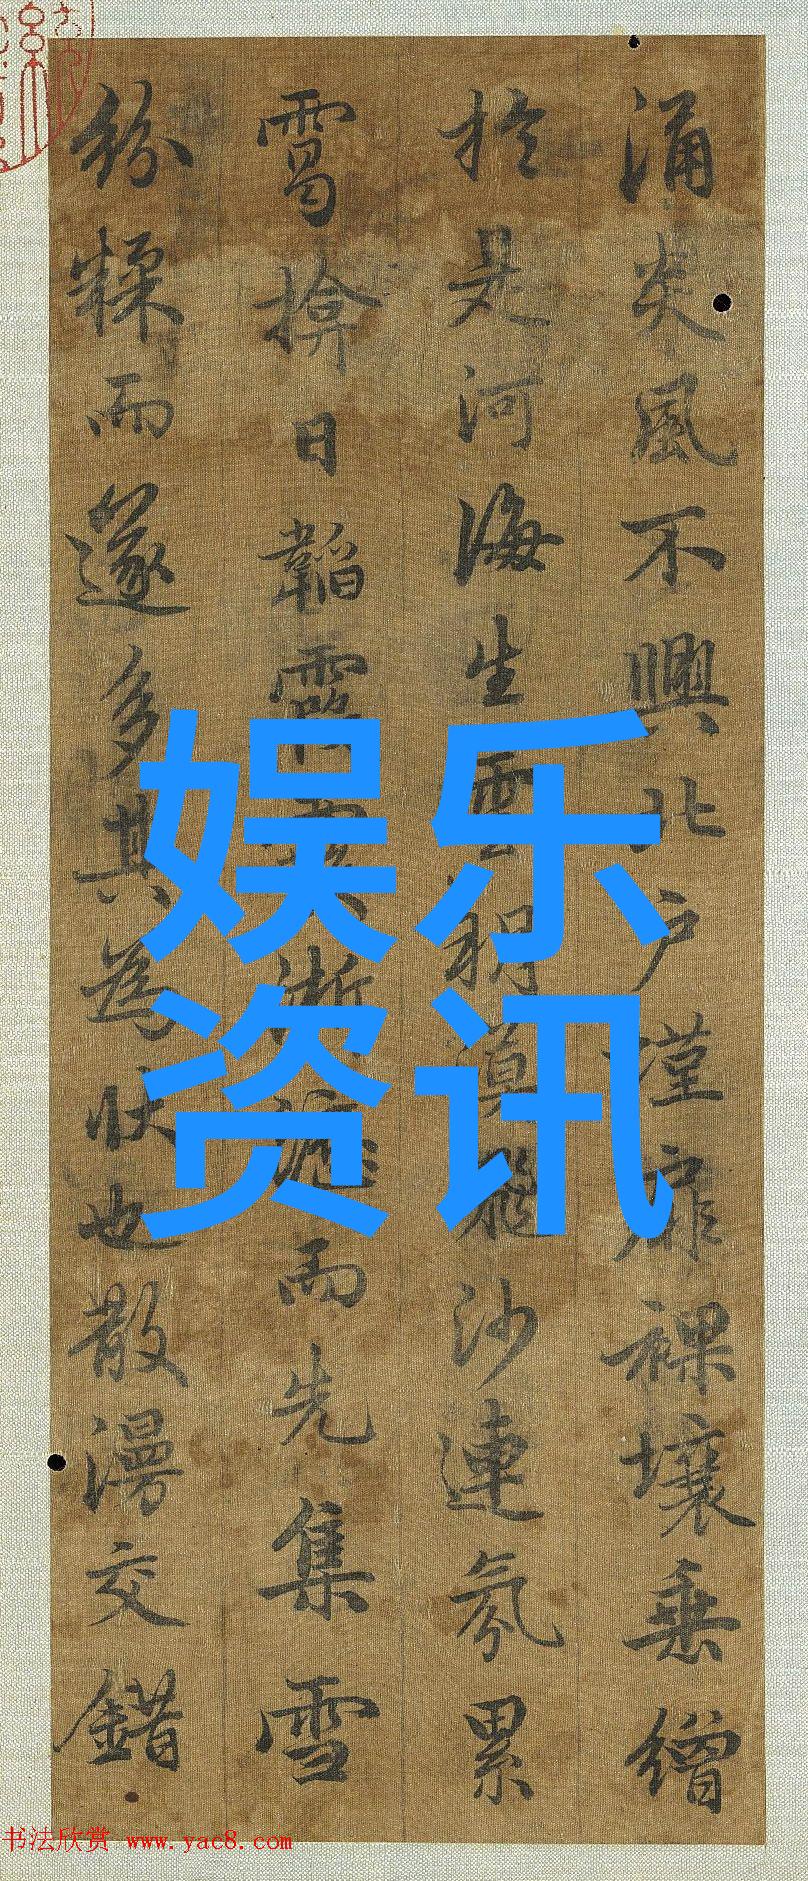 涌炎風不興北戶墐扉裸壤垂繒
於是河海生雲朔漠飛沙連氛累
靄揜日韜淅瀝而先集雪
紛糅而遂多其為狀也散漫交錯
娱乐
资讯
书法欣赏 www.yac8.com